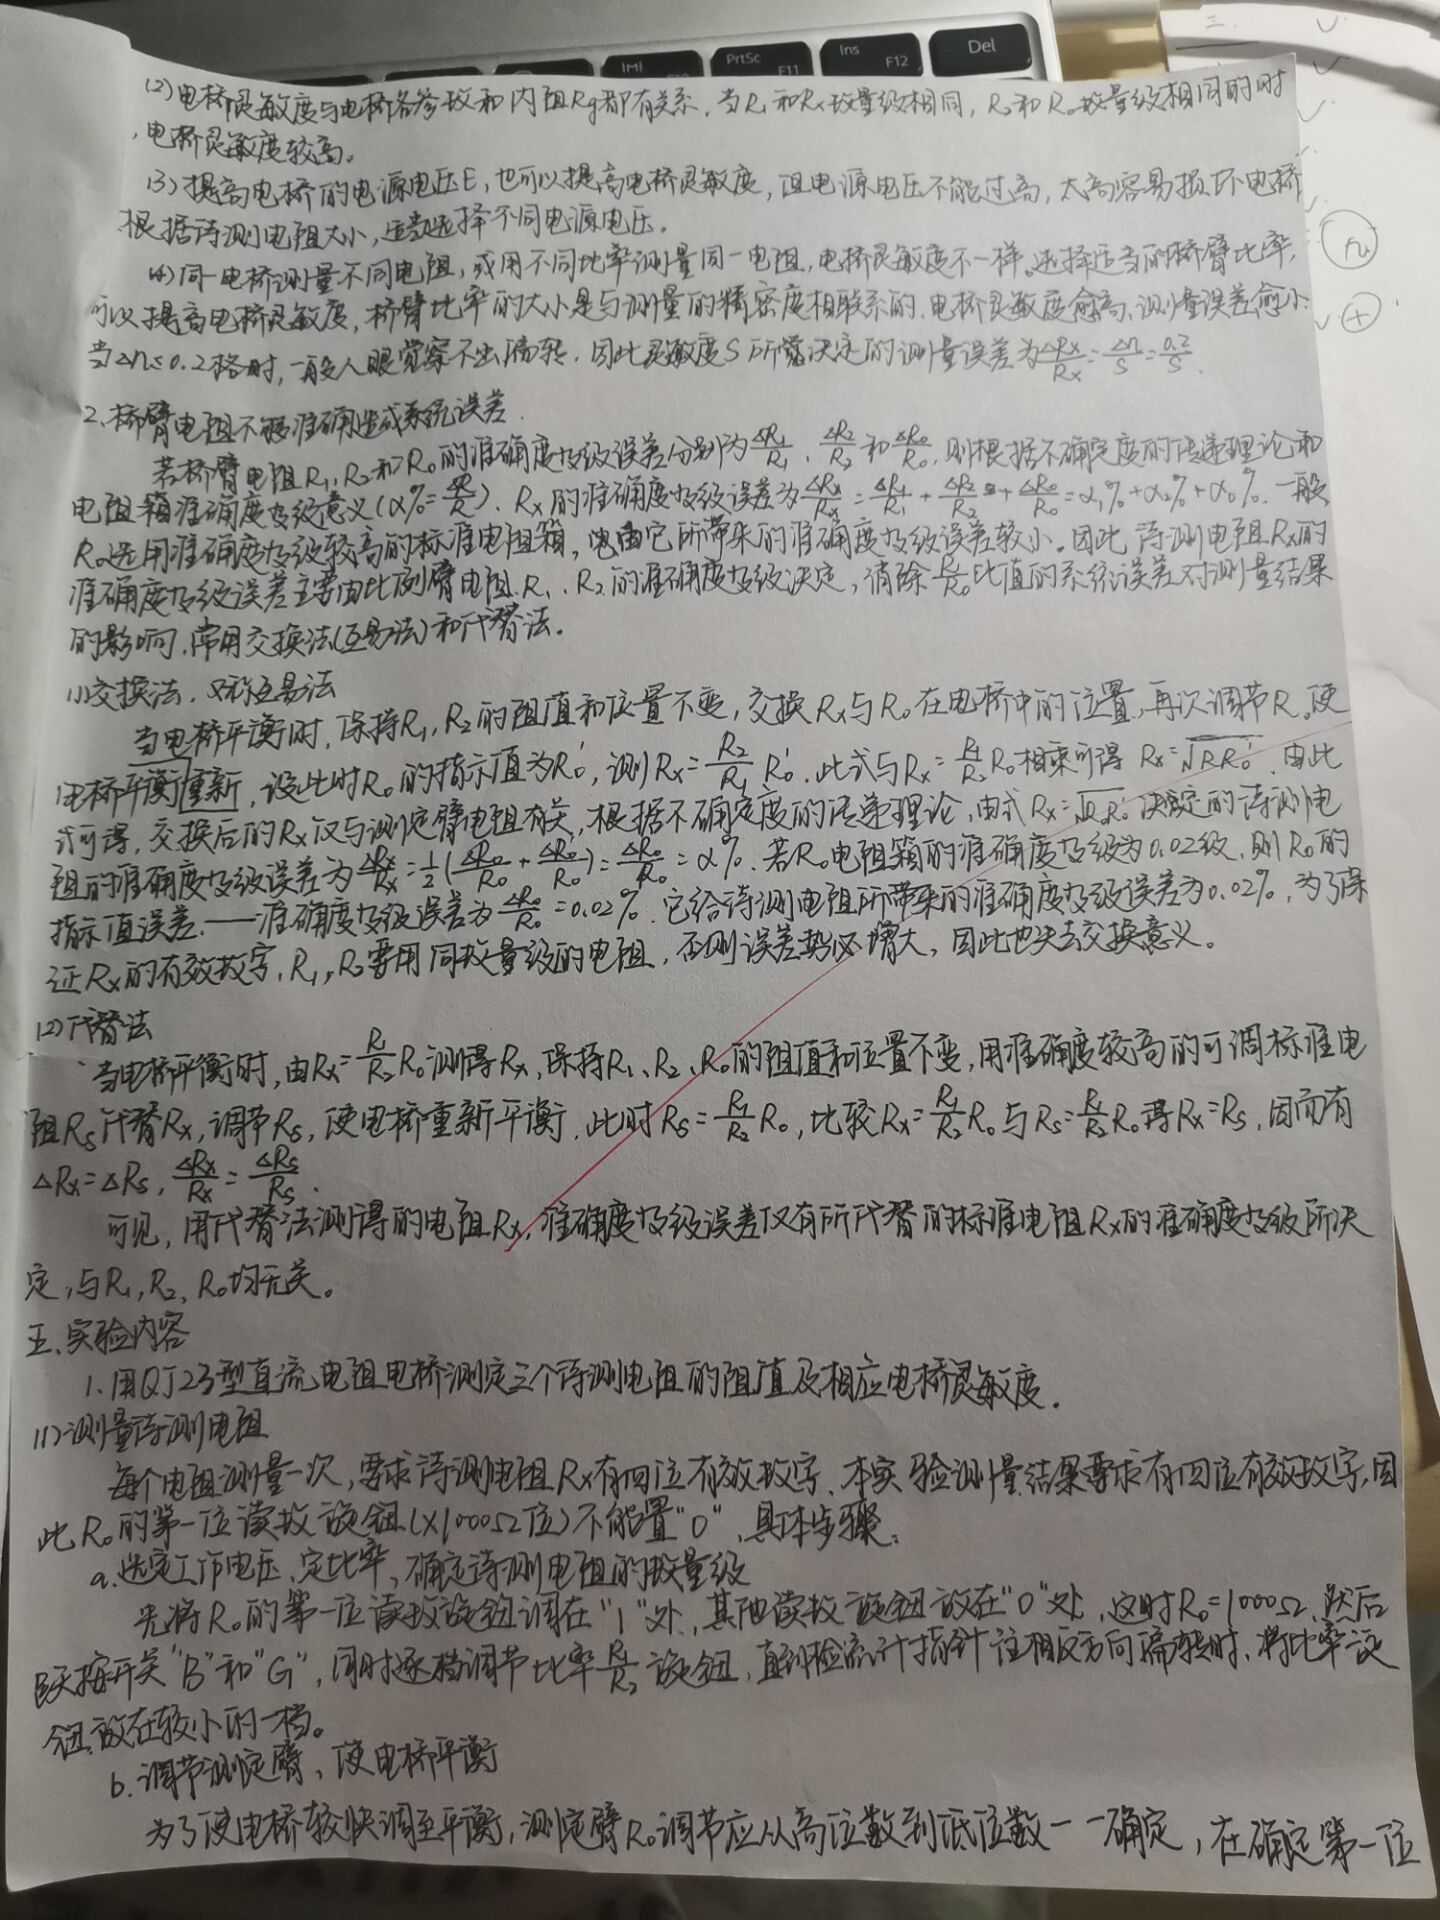 PrtSc
F11
Ins
F12
Del
(2)电桥灵敏度与电桥各参数和内阻Rg都有关系,当R₁和Rx数量级相同,R₂和R₀数量级相同的时
,电桥灵敏度较高。
(3)提高电桥的电源电压E,也可以提高电桥灵敏度,但电源电压不能过高,太高容易损坏电桥
根据待测电阻大小,适当选择不同电源电压。
(4)同一电桥测量不同电阻,或用不同比率测量同一电阻,电桥灵敏度不一样。选择适当的桥臂比率,
可以提高电桥灵敏度,桥臂比率的大小是与测量的精密度相联系的.电桥灵敏度愈高,测量误差愈小.
当Δn≤0.2格时,一般人眼觉察不出偏转.因此灵敏度S所决定的测量误差为ΔRx/Rx=Δn/S=0.2/S.
2.桥臂电阻不够准确造成系统误差.
若桥臂电阻R₁、R₂和R₀的准确度等级误差分别为ΔR₁/R₁、ΔR₂/R₂和ΔR₀/R₀,则根据不确定度的传递理论和
电阻箱准确度等级意义(α%=ΔR/R).Rx的准确度等级误差为ΔRx/Rx=ΔR₁/R₁+ΔR₂/R₂+ΔR₀/R₀=α₁%+α₂%+α₀%.一般
R₀选用准确度等级较高的标准电阻箱,由它所带来的准确度等级误差较小。因此待测电阻Rx的
准确度等级误差主要由比例臂电阻R₁、R₂的准确度等级决定,消除比值的系统误差对测量结果
的影响,常用交换法(互易法)和代替法。
(1)交换法,又称互易法
当电桥平衡时,保持R₁,R₂的阻值和位置不变,交换Rx与R₀在电桥中的位置,再次调节R₀使
电桥平衡重新,设此时R₀的指示值为R₀′,则Rx=R₂/R₁ R₀′.此式与Rx=R₁/R₂ R₀相乘可得 Rx=√R₀R₀′.由此
式可得,交换后的Rx仅与测定臂电阻有关,根据不确定度的传递理论,由式Rx=√R₀R₀′决定的待测电
阻的准确度等级误差为ΔRx/Rx=1/2(ΔR₀/R₀+ΔR₀/R₀)=ΔR₀/R₀=α%.若R₀电阻箱的准确度等级为0.02级,则R₀的
指示值误差.——准确度等级误差为ΔR₀/R₀=0.02%.它给待测电阻所带来的准确度等级误差为0.02%,为了保
证Rx的有效数字,R₁,R₂要用同数量级的电阻,否则误差势必增大,因此也失去交换意义。
(2)代替法
当电桥平衡时,由Rx=R₁/R₂ R₀测得Rx,保持R₁、R₂、R₀的阻值和位置不变,用准确度较高的可调标准电
阻Rs代替Rx,调节Rs,使电桥重新平衡.此时Rs=R₁/R₂ R₀,比较Rx=R₁/R₂ R₀与Rs=R₁/R₂ R₀得Rx=Rs,因而有
ΔRx=ΔRs,ΔRx/Rx=ΔRs/Rs.
可见,用代替法测得的电阻Rx,准确度等级误差仅有所代替的标准电阻Rx的准确度等级所决
定,与R₁,R₂、R₀均无关。
五.实验内容
1.用QJ23型直流电阻电桥测定三个待测电阻的阻值及相应电桥灵敏度.
(1)测量待测电阻
每个电阻测量一次,要求待测电阻Rx有四位有效数字.本实验测量结果要求有四位有效数字,因
此R₀的第一位读数旋钮(×1000Ω位)不能置"0",具体步骤:
a.选定工作电压、定比率、确定待测电阻的数量级
先将R₀的第一位读数旋钮调在"1"处,其他读数旋钮放在"0"处,这时R₀=1000Ω,然后
跃按开关"B"和"G",同时逐档调节比率R₁/R₂旋钮,直到检流计指针往相反方向偏转时,将比率旋
钮放在较小的一档。
b.调节测定臂、使电桥平衡
为了使电桥较快调至平衡,测定臂R₀调节应从高位数到低位数一一确定,在确定第一位